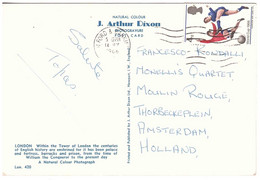 NATURAL COLOUR
J. Arthur Dixon
PHOTOGRAPH
POST CARD
Saluti
FRANCESCO
MONELLIS QUARTET,
MOULIN ROUGE,
THORBECKEPLEIN,
AMSTERDAM,
HOLLAND.
LONDON Within the Tower of London the centuries
of English history are enshrined for it has been palace
and fortress, barracks and prison, from the time of
William the Conqueror to the present day
A Natural Colour Photograph